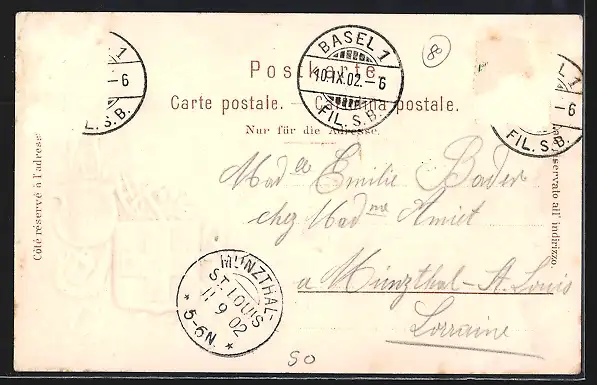 1
-6
L.S.B.
BASEL 1
10.IX.02.-6
FIL.S.B.
8
L 1
-6
FIL.S.B.
Postkarte.
Carte postale. — Cartolina postale.
Nur für die Adresse.
Côté réservé à l'adresse
Lato riservato all' indirizzo.
Mad lle Emilie Bader
chez Mad me Amiet
a Münzthal-St. Louis
Lorraine
MÜNZTHAL-
ST. LOUIS
11 9 02
* 5-6N. *
50